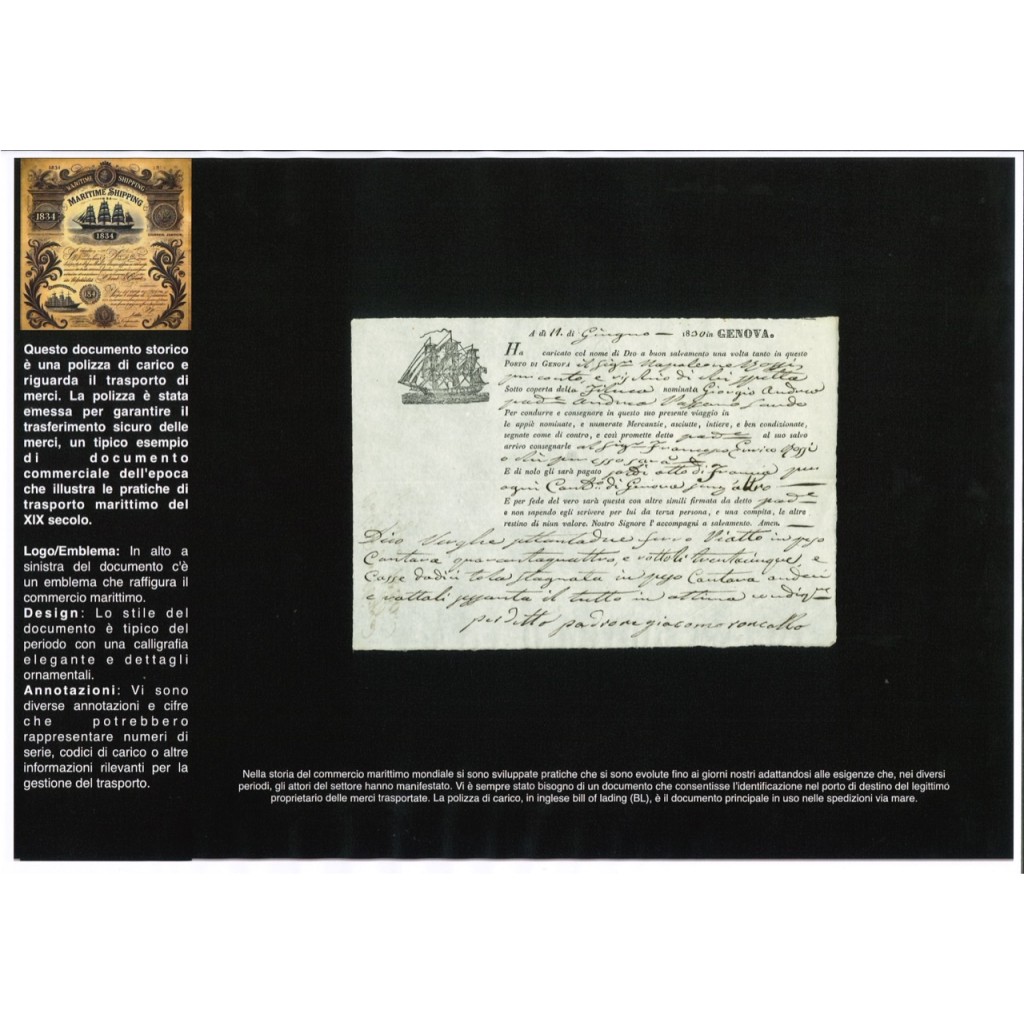 MARITIME SHIPPING
MARITIME SHIPPING
1834
1834
Questo documento storico
è una polizza di carico e
riguarda il trasporto di
merci. La polizza è stata
emessa per garantire il
trasferimento sicuro delle
merci, un tipico esempio
di documento
commerciale dell'epoca
che illustra le pratiche di
trasporto marittimo del
XIX secolo.
Logo/Emblema: In alto a
sinistra del documento c'è
un emblema che raffigura il
commercio marittimo.
Design: Lo stile del
documento è tipico del
periodo con una calligrafia
elegante e dettagli
ornamentali.
Annotazioni: Vi sono
diverse annotazioni e cifre
che potrebbero
rappresentare numeri di
serie, codici di carico o altre
informazioni rilevanti per la
gestione del trasporto.
A dì 11. di Giugno 1830 in GENOVA.
Ha caricato col nome di Dio a buon salvamento una volta tanto in questo
PORTO DI GENOVA il Sig. Napoleone Rossi
per conto, e
Sotto coperta della nominata Giorgio Andrea
Andrea
Per condurre e consegnare in questo suo presente viaggio in
le appiè nominate, e numerate Mercanzie, asciutte, intiere, e ben condizionate,
segnate come di contro, e così promette detto al suo salvo
arrivo consegnarle al Sig. Francesco Enrico Rossi
o chi per esso sarà
E di nolo gli sarà pagato soldi otto di Francia per
ogni Cant. di Genova senz'altro
E per fede del vero sarà questa con altre simili firmata da detto
e non sapendo egli scrivere per lui da terza persona, e una compita, le altre
restino di niun valore. Nostro Signore l'accompagni a salvamento. Amen.
Dico Verghe ferro in peso
Cantara quarantaquattro, e rottoli trentacinque, e
Casse dodici tola stagnata in peso Cantara undeci
e rottoli il tutto in ottima
per detto padrone giacomo roncallo
Nella storia del commercio marittimo mondiale si sono sviluppate pratiche che si sono evolute fino ai giorni nostri adattandosi alle esigenze che, nei diversi
periodi, gli attori del settore hanno manifestato. Vi è sempre stato bisogno di un documento che consentisse l'identificazione nel porto di destino del legittimo
proprietario delle merci trasportate. La polizza di carico, in inglese bill of lading (BL), è il documento principale in uso nelle spedizioni via mare.